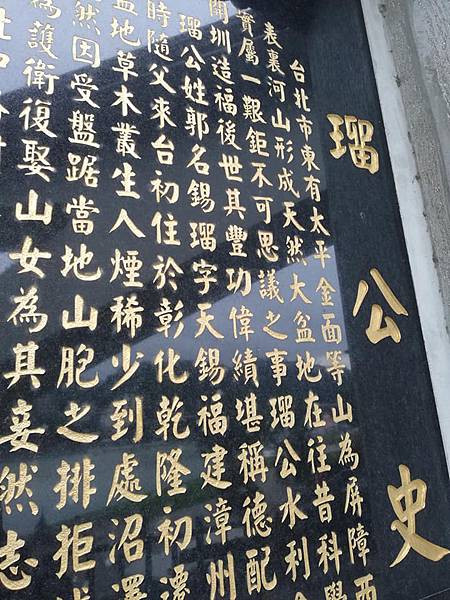 瑠公史
台北市東有太平金面等山為屏障西
表裏河山形成天然大盆地在往昔科學
實屬一艱鉅不可思議之事瑠公水利
開圳造福後世其豐功偉績堪稱德配
瑠公姓郭名錫瑠字天錫福建漳州
時隨父來台初住於彰化乾隆初遷
盆地草木叢生人煙稀少到處沼澤
然因受盤踞當地山胞之排拒
為護衛復娶山女為其妾然志